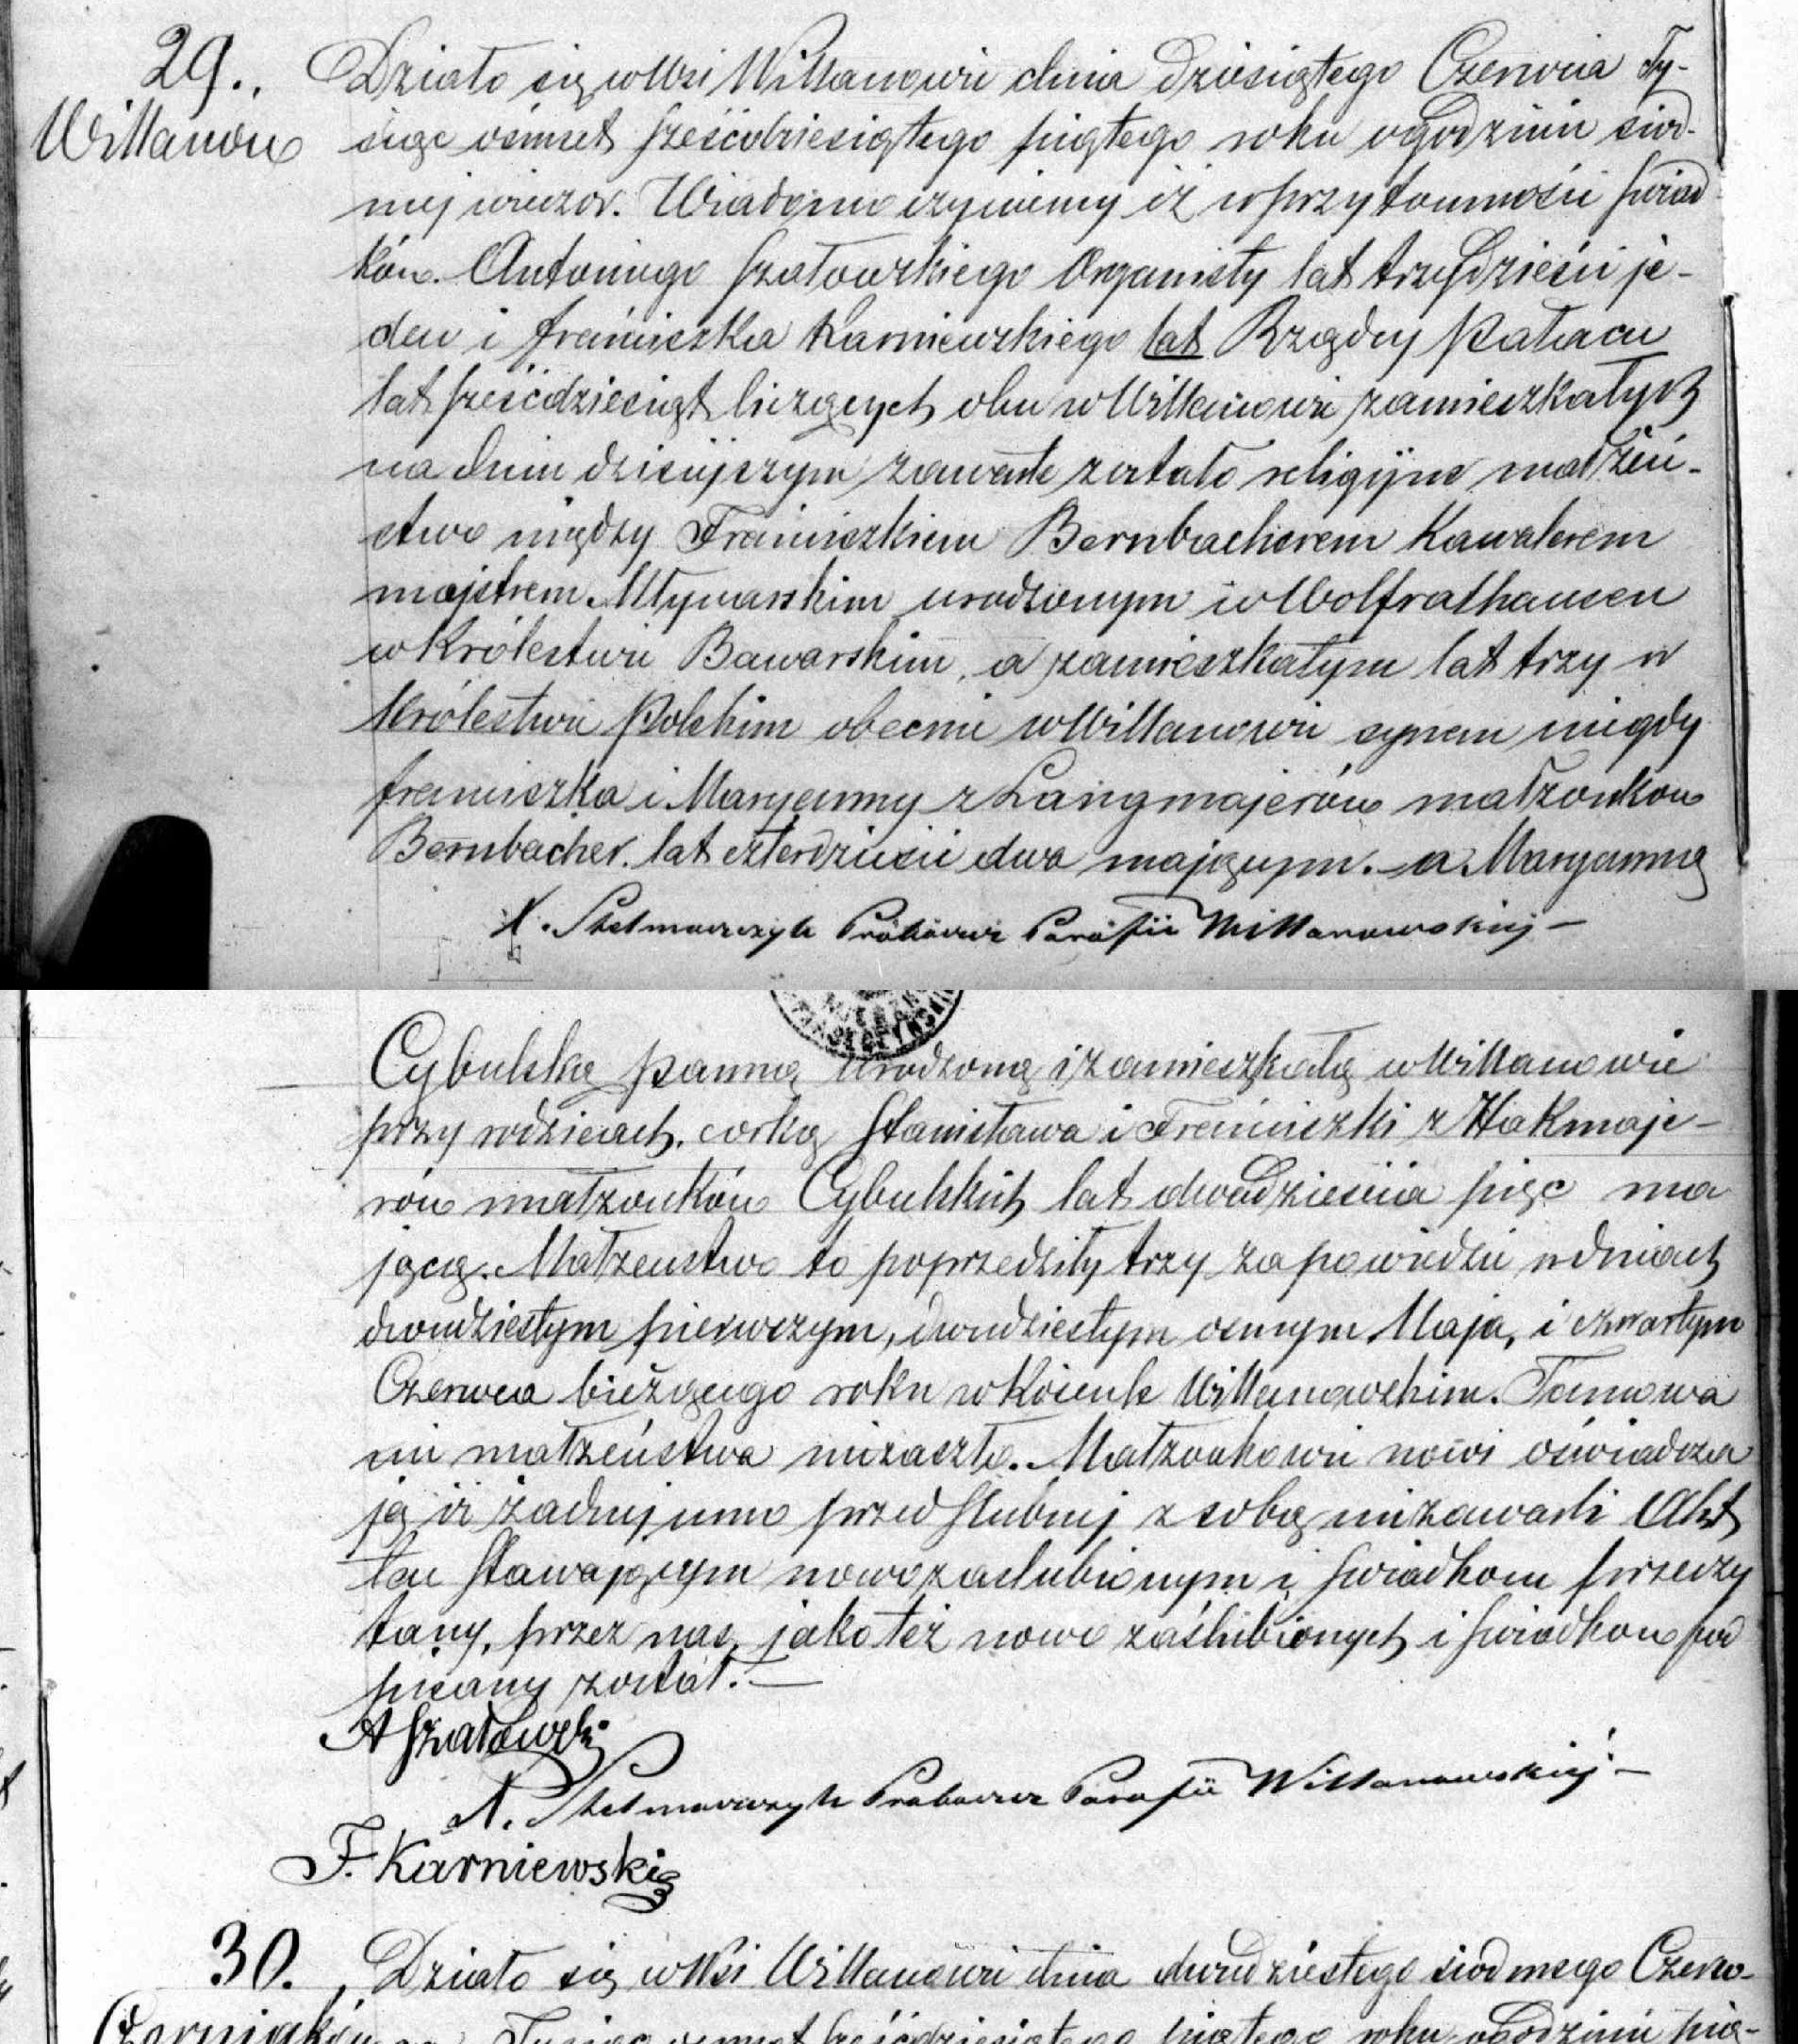 29.. Działo się w Wsi Willanowie dnia dziesiątego Czerwca Ty-
Willanów siąc ośmset sześćdziesiątego piątego roku o godzinie siód-
mej wieczor. Wiadomo czyniemy iż w przytomności świad
ków. Antoniego Szatowskiego Organisty lat trzydzieści je-
den i Franciszka Karniewskiego lat Rządcy Pałacu
lat sześćdziesiąt liczących obu w Willanowie zamieszkałych
na dniu dzisiejszym zawarte zostało religijne małżeń-
stwo między Franciszkiem Bernbacherem Kawalerem
majstrem Młynarskim urodzonym w Wolfrathausen
w Królestwie Bawarskim, a zamieszkałym lat trzy w
Królestwie Polskim obecnie w Willanowie synem niegdy
Franciszka i Maryanny z Langmajerów małżonków
Bernbacher. lat czterdzieści dwa mającym. – a Maryanną
X. Stelmaszczyk Proboszcz Parafii Willanowskiej –
Cybulską panną, urodzoną i zamieszkałą w Willanowie
przy rodzicach. corką Stanisława i Franciszki z Hakmaje-
rów małżonków Cybulskich lat dwadzieścia pięc ma
jącą. Małżenstwo to poprzedziły trzy zapowiedzie w dniach
dwudziestym pierwszym, dwudziestym osmym Maja, i czwartym
Czerwca bieżącego roku w Kościele Willanowskim. Tamowa
nie małżeństwa niezaszło. Małżonkowie nowi oświadcza
ją iż żadnej umo przed ślubnej z sobą niezawarli Akt
ten stawającym nowozaslubionym i świadkom przeczy
tany, przez nas, jako też nowo zaślubionych i świadkow pod
pisany został. –
A Szatowski
X. Stelmaszczyk Proboszcz Parafii Willanowskiej –
F. Karniewski
30. Działo się w Wsi Willanowie dnia dwudziestego siodmego Czerw-
Czerniaków ca Tysiąc osmset sześćdziesiątego piątego roku o godzinie pią-